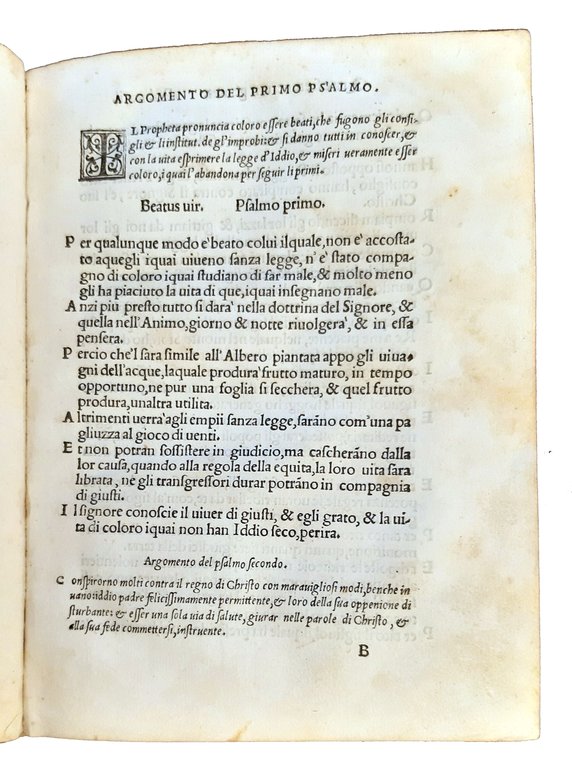 ARGOMENTO DEL PRIMO PSALMO.
IL Propheta pronuncia coloro essere beati, che fugono gli consi-
gli & li institut. de gl'improbi: & si danno tutti in conoscer, &
con la uita esprimere la legge d'Iddio, & miseri ueramente esser
coloro, i quai l'abandona per seguir li primi.
Beatus uir. Psalmo primo.
Per qualunque modo e' beato colui ilquale, non e' accosta-
to aquegli iquai uiueno sanza legge, n'e' stato compa-
gno di coloro iquai studiano di far male, & molto meno
gli ha piaciuto la uita di que, iquai insegnano male.
Anzi più presto tutto si dara' nella dottrina del Signore, &
quella nell'Animo, giorno & notte riuolgera', & in essa
pensera.
Percio che'l sara simile all'Albero piantata appo gli uiua-
gni dell'acque, laquale produra' frutto maturo, in tempo
opportuno, ne pur una foglia si secchera, & quel frutto
produra, unaltra utilita.
Altrimenti uerra' agli empii sanza legge, sarāno com'una pa
gliuzza al gioco di uenti.
Et non potran sossistere in giudicio, ma cascherāno dalla
lor causa, quando alla regola della equita, la loro uita sara
librata, ne gli transgressori durar potrāno in compagnia
di giusti.
Il signore conoscie il uiuer di giusti, & egli grato, & la ui-
ta di coloro iquai non han Iddio seco, perira.
Argomento del psalmo secondo.
Conspirorno molti contra il regno di Christo con marauigliosi modi, benche in
uano: iddio padre felicissimamente permittente, & loro della sua oppenione di
sturbante: & esser una sola uia di salute, giurar nelle parole di Christo, &
alla sua fede commettersi, instruente.
B